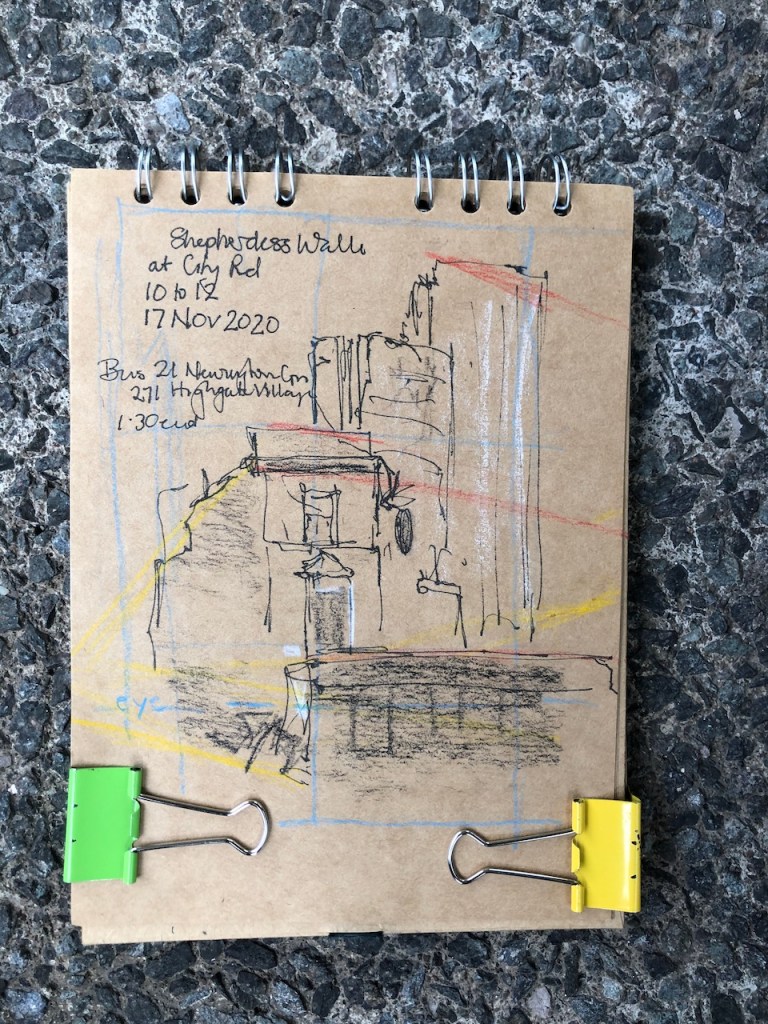 Shepherdess Walk
at City Rd
10 to 12
17 Nov 2020
Bus 21 Newington Grn
271 Highgate Village
1.30 end
eye